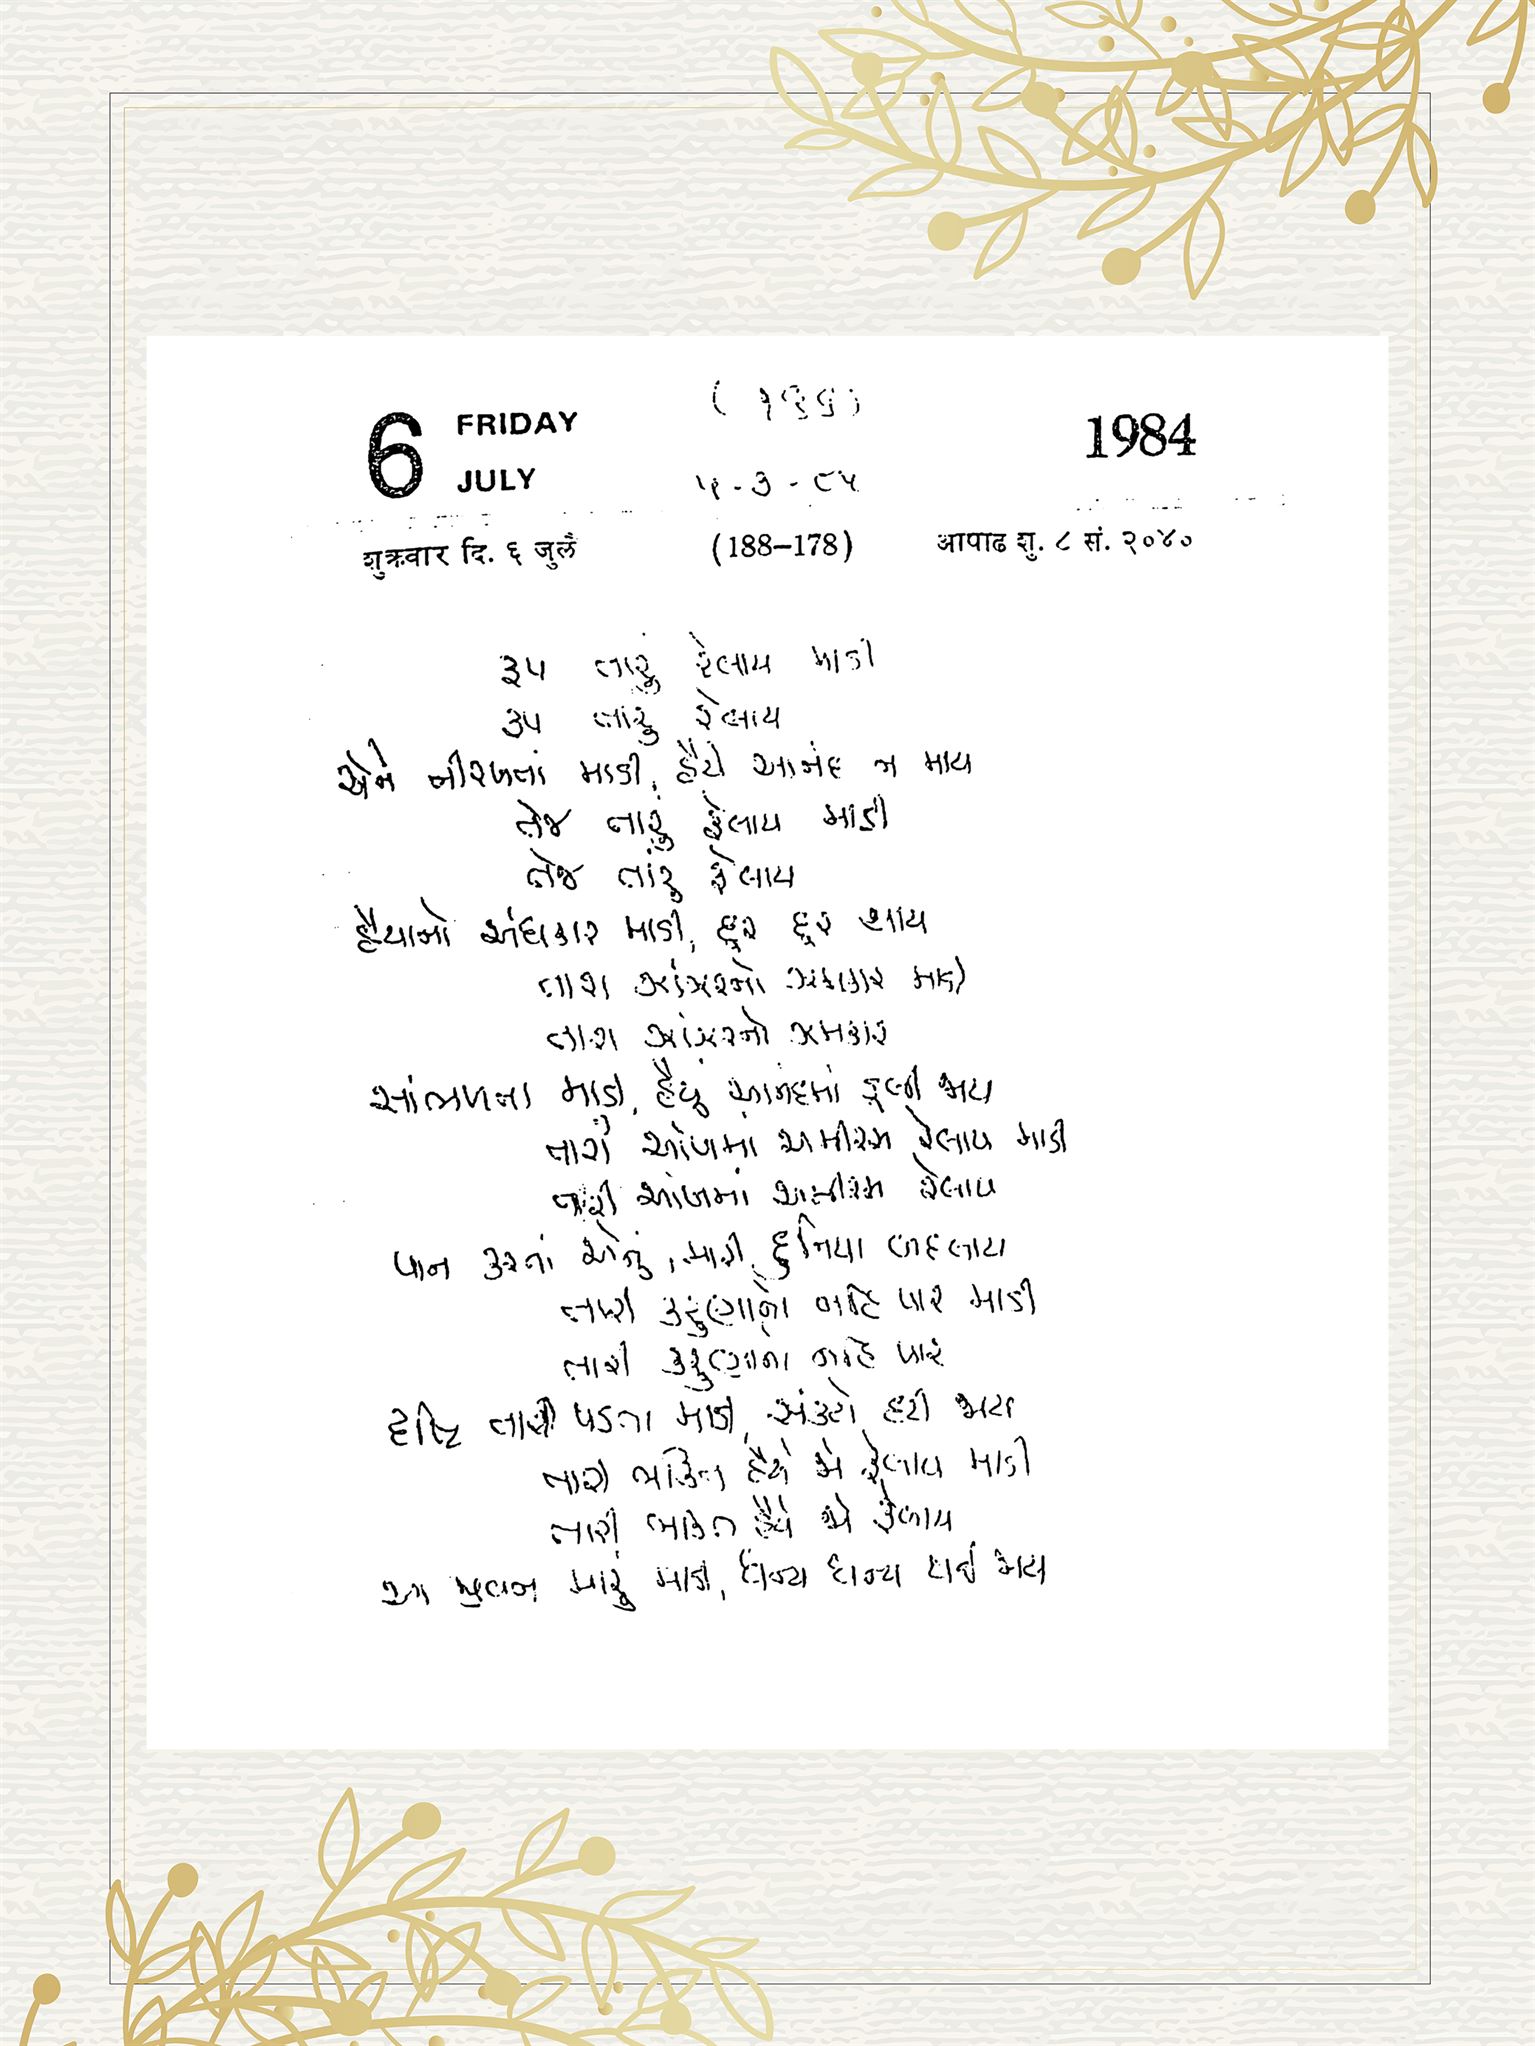 6 FRIDAY JULY 1984
૫-૩-૮૫
शुक्रवार दि. ६ जुलै (188–178) आषाढ शु. ८ सं. २०४०
રૂપ તારું રેલાય માડી
રૂપ તારું રેલાય
એને નીરખતાં માડી, હૈયે આનંદ ન માય
તેજ તારું ફેલાય માડી
તેજ તારું ફેલાય
હૈયાનો અંધકાર માડી, દૂર દૂર થાય
તારા ઝાંઝરનો ઝમકાર માડી
તારા ઝાંઝરનો ઝમકાર
સાંભળતા માડી, હૈયું આનંદમાં ડૂબી જાય
તારી આંખમાં અમીરસ રેલાય માડી
તારી આંખમાં અમીરસ રેલાય
પાન કરતાં એનું, મારી દુનિયા બદલાય
તારી કરુણાનો નહિ પાર માડી
તારી કરુણાનો નહિ પાર
દૃષ્ટિ તારી પડતા માડી, સંકટો હટી જાય
તારી ભક્તિ હૈયે જો ફેલાય માડી
તારી ભક્તિ હૈયે જો ફેલાય
આ જીવન મારું માડી, ધન્ય ધન્ય થઈ જાય